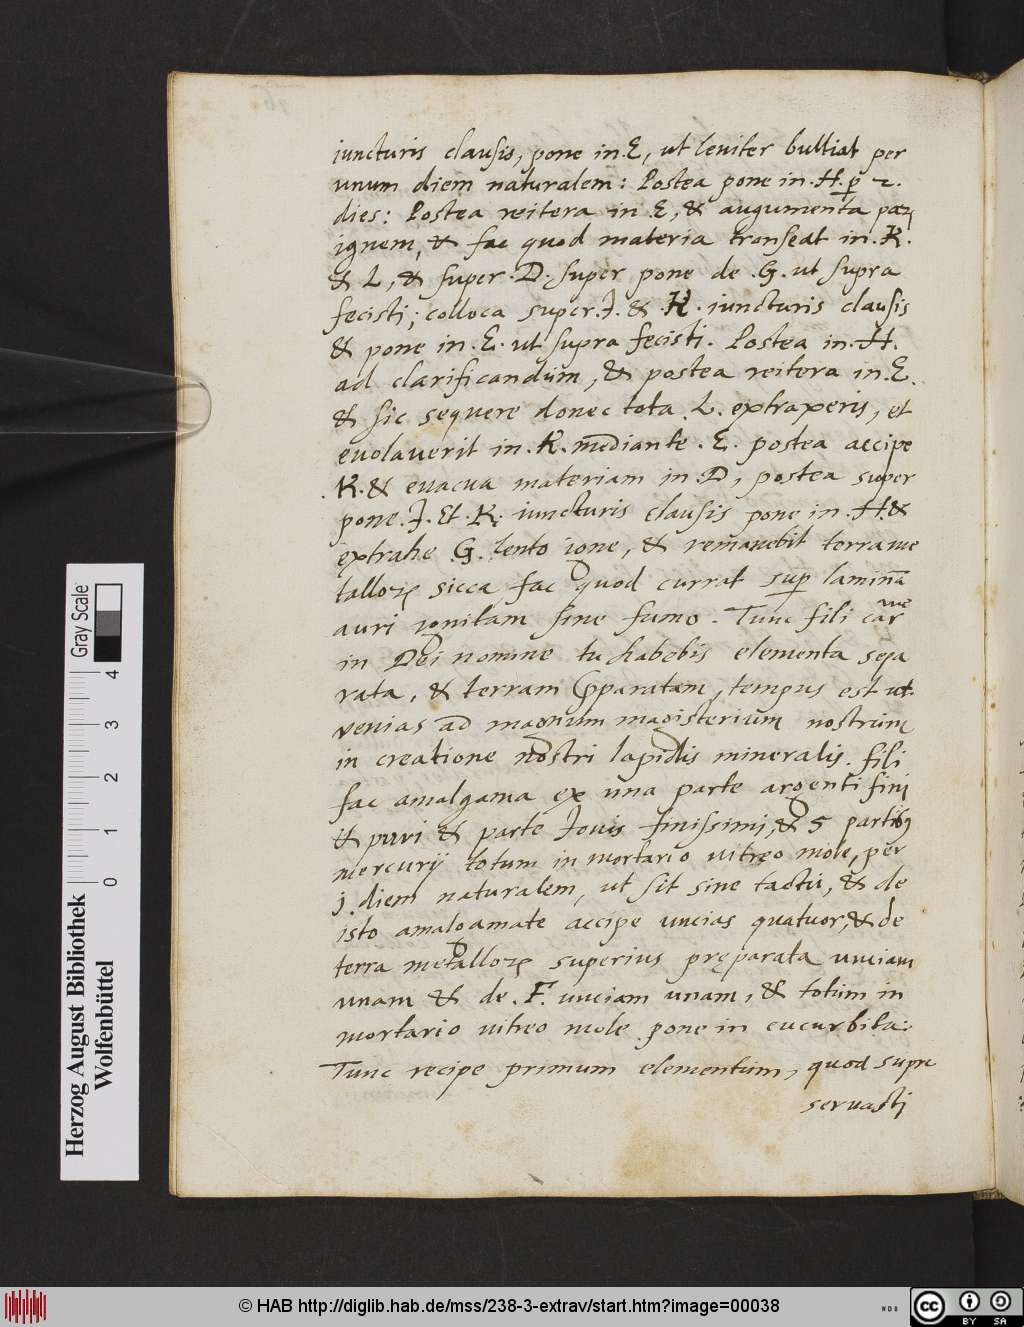 iuncturis clausis, pone in .E, ut leniter bulliat per
unum diem naturalem: Postea pone in .H. p 2.
dies: Postea reitera in E, & augumenta
ignem, & fac quod materia transeat in .K.
& L, & super .D. super pone de .G. ut supra
fecisti; colloca super .I. & .K. iuncturis clausis
& pone in .E. ut supra fecisti. Postea in .H.
ad clarificandum, & postea reitera in .E.
& sic sequere donec tota .L. extraxeris, et
euolauerit in .K. mediante .E. postea accipe
.K. & euacua materiam in .D, postea super
pone .I. et .K. iuncturis clausis pone in .H. &
extrahe G. lento igne, & remanebit terra me
talloꝝ sicca fac quod currat sup laminã
auri ignitam sine fumo. Tunc fili car me
in Dei nomine tu habebis elementa sepa
rata, & terram pparatam, tempus est ut
venias ad magnum magisterium nostrum
in creatione nostri lapidis mineralis. fili
fac amalgama ex una parte argenti fini
& puri & parte Iouis finissimi, & 5 partibꝰ
mercurij totum in mortario vitreo mole, per
j. diem naturalem, ut sit sine tactu, & de
isto amalgamate accipe uncias quatuor, & de
terra metalloꝝ superius pręparata unciam
unam & de .F. unciam unam, & totum in
mortario vitreo mole pone in cucurbita.
Tunc recipe primum elementum, quod supra
seruasti
Herzog August Bibliothek
Wolfenbüttel
Gray Scale
0 1 2 3 4
© HAB http://diglib.hab.de/mss/238-3-extrav/start.htm?image=00038
cc BY SA